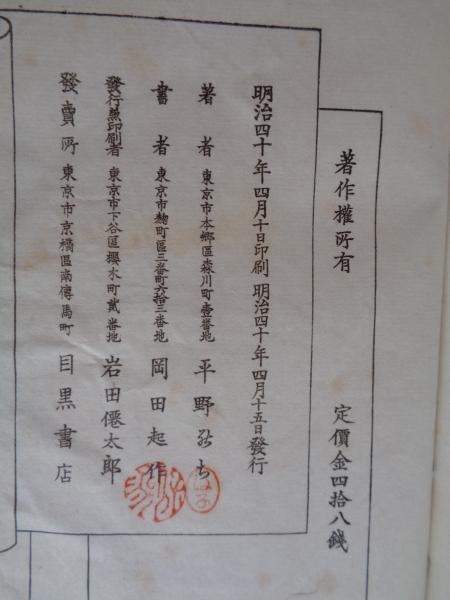 著作權所有
定價金四拾八錢
明治四十年四月十日印刷 明治四十年四月十五日發行
著者 東京市本郷區森川町壹番地 平野 ち
書者 東京市麹町區三番町六拾三番地 岡田起作
發行兼印刷者 東京市下谷區櫻木町貳番地 岩田僊太郎
發賣所 東京市京橋區南傳馬町 目黒書店